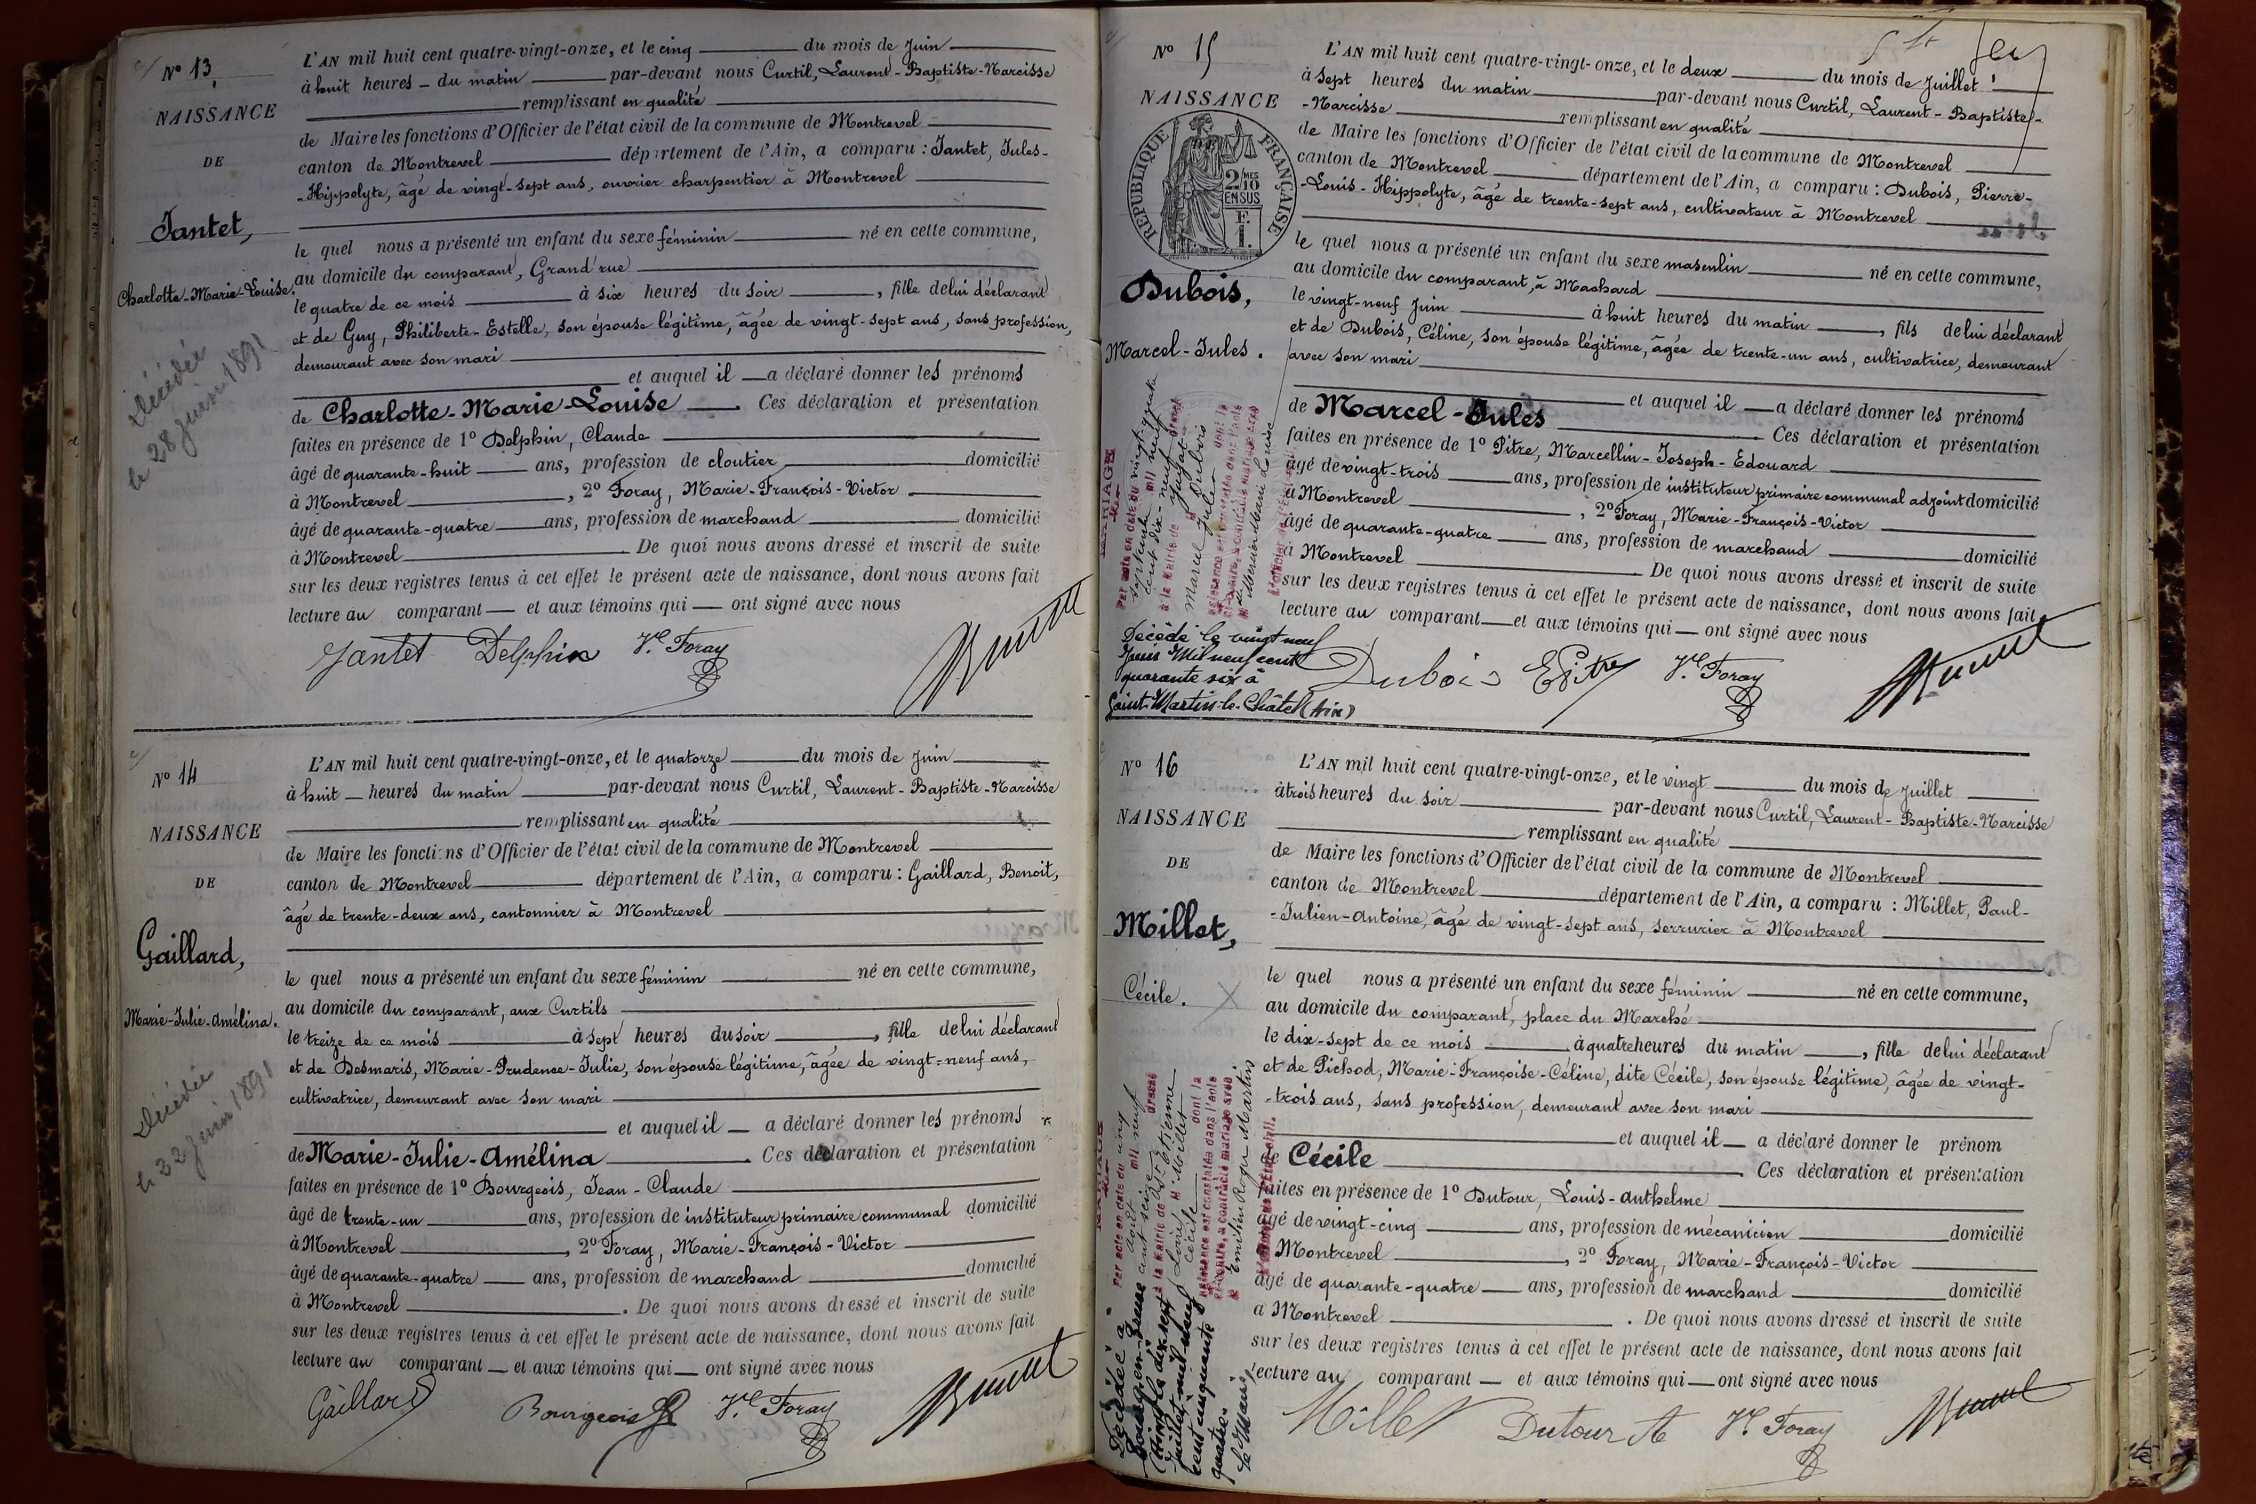 Nº 13
NAISSANCE
DE
Jantet,
Charlotte-Marie-Louise.
Décédée
le 28 juin 1891
L'AN mil huit cent quatre-vingt-onze, et le cinq du mois de Juin
à huit heures du matin par-devant nous Curtil, Laurent-Baptiste-Narcisse
remplissant en qualité
de Maire les fonctions d'Officier de l'état civil de la commune de Montrevel
canton de Montrevel département de l'Ain, a comparu : Jantet, Jules-
-Hippolyte, âgé de vingt-sept ans, ouvrier charpentier à Montrevel
le quel nous a présenté un enfant du sexe féminin né en cette commune,
au domicile du comparant, Grand'rue
le quatre de ce mois à six heures du soir, fille de lui déclarant
et de Guy, Philiberte-Estelle, son épouse légitime, âgée de vingt-sept ans, sans profession,
demeurant avec son mari
et auquel il a déclaré donner les prénoms
de Charlotte-Marie-Louise. Ces déclaration et présentation
faites en présence de 1º Delphin, Claude
âgé de quarante-huit ans, profession de cloutier domicilié
à Montrevel, 2º Foray, Marie-François-Victor
âgé de quarante-quatre ans, profession de marchand domicilié
à Montrevel De quoi nous avons dressé et inscrit de suite
sur les deux registres tenus à cet effet le présent acte de naissance, dont nous avons fait
lecture au comparant et aux témoins qui ont signé avec nous
Jantet Delphin Vr. Foray
Nº 14
NAISSANCE
DE
Gaillard,
Marie-Julie-Amélina.
Décédée
juin 1891
L'AN mil huit cent quatre-vingt-onze, et le quatorze du mois de Juin
à huit heures du matin par-devant nous Curtil, Laurent-Baptiste-Narcisse
remplissant en qualité
de Maire les fonctions d'Officier de l'état civil de la commune de Montrevel
canton de Montrevel département de l'Ain, a comparu : Gaillard, Benoit,
âgé de trente-deux ans, cantonnier à Montrevel
le quel nous a présenté un enfant du sexe féminin né en cette commune,
au domicile du comparant, aux Curtils
le treize de ce mois à sept heures du soir, fille de lui déclarant
et de Desmaris, Marie-Prudence-Julie, son épouse légitime, âgée de vingt-neuf ans,
cultivatrice, demeurant avec son mari
et auquel il a déclaré donner les prénoms
de Marie-Julie-Amélina. Ces déclaration et présentation
faites en présence de 1º Bourgeois, Jean-Claude
âgé de trente-un ans, profession de instituteur primaire communal domicilié
à Montrevel, 2º Foray, Marie-François-Victor
âgé de quarante-quatre ans, profession de marchand domicilié
à Montrevel. De quoi nous avons dressé et inscrit de suite
sur les deux registres tenus à cet effet le présent acte de naissance, dont nous avons fait
lecture au comparant et aux témoins qui ont signé avec nous
Gaillard Bourgeois Vr. Foray
Nº 15
NAISSANCE
RÉPUBLIQUE FRANÇAISE
2/10 MES EN SUS
F. 1.
Dubois,
Marcel-Jules.
L'AN mil huit cent quatre-vingt-onze, et le deux du mois de Juillet
à sept heures du matin par-devant nous Curtil, Laurent-Baptiste-
-Narcisse remplissant en qualité
de Maire les fonctions d'Officier de l'état civil de la commune de Montrevel
canton de Montrevel département de l'Ain, a comparu : Dubois, Pierre-
-Louis-Hippolyte, âgé de trente-sept ans, cultivateur à Montrevel
le quel nous a présenté un enfant du sexe masculin né en cette commune,
au domicile du comparant, à Machard
le vingt-neuf Juin à huit heures du matin, fils de lui déclarant
et de Dubois, Céline, son épouse légitime, âgée de trente-un ans, cultivatrice, demeurant
avec son mari
et auquel il a déclaré donner les prénoms
de Marcel-Jules Ces déclaration et présentation
faites en présence de 1º Pitre, Marcellin-Joseph-Edouard
âgé de vingt-trois ans, profession de instituteur primaire communal adjoint domicilié
à Montrevel, 2º Foray, Marie-François-Victor
âgé de quarante-quatre ans, profession de marchand domicilié
à Montrevel De quoi nous avons dressé et inscrit de suite
sur les deux registres tenus à cet effet le présent acte de naissance, dont nous avons fait
lecture au comparant et aux témoins qui ont signé avec nous
Décédé le vingt neuf
Juin Mil neuf cent
quarante six à
Saint-Martin-le-Châtel (Ain)
Dubois E Pitre Vr. Foray
Nº 16
NAISSANCE
DE
Millet,
Cécile.
L'AN mil huit cent quatre-vingt-onze, et le vingt du mois de Juillet
à trois heures du soir par-devant nous Curtil, Laurent-Baptiste-Narcisse
remplissant en qualité
de Maire les fonctions d'Officier de l'état civil de la commune de Montrevel
canton de Montrevel département de l'Ain, a comparu : Millet, Paul-
-Julien-Antoine, âgé de vingt-sept ans, serrurier à Montrevel
le quel nous a présenté un enfant du sexe féminin né en cette commune,
au domicile du comparant, place du Marché
le dix-sept de ce mois à quatre heures du matin, fille de lui déclarant
et de Pichod, Marie-Françoise-Céline, dite Cécile, son épouse légitime, âgée de vingt-
-trois ans, sans profession, demeurant avec son mari
et auquel il a déclaré donner le prénom
de Cécile. Ces déclaration et présentation
faites en présence de 1º Dutour, Louis-Anthelme
âgé de vingt-cinq ans, profession de mécanicien domicilié
à Montrevel, 2º Foray, Marie-François-Victor
âgé de quarante-quatre ans, profession de marchand domicilié
à Montrevel. De quoi nous avons dressé et inscrit de suite
sur les deux registres tenus à cet effet le présent acte de naissance, dont nous avons fait
lecture au comparant et aux témoins qui ont signé avec nous
Millet Dutour A Vr. Foray
Décédée à
Bourg-en-Bresse
(Ain) le dix sept
juillet mil neuf
cent cinquante
quatre.